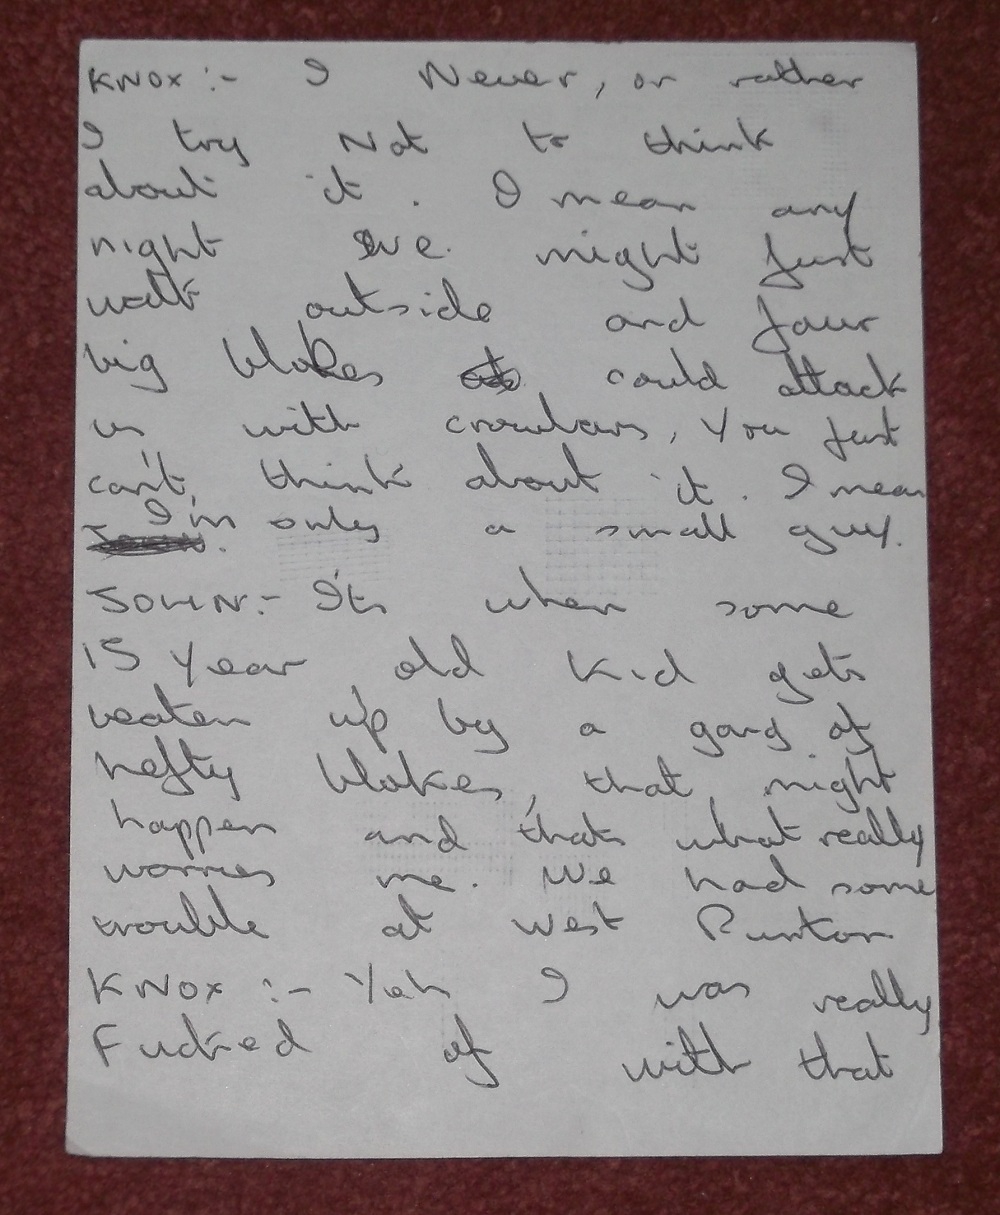 KNOX :- I Never, or rather
I try Not to think
about it. I mean any
night we. might just
walk outside and four
big blokes could attack
us with crowbars, You just
can't, think about it. I mean
I'm only a small guy.
JOHN:- It's when some
15 Year old Kid gets
beaten up by a gang of
hefty blokes, that might
happen and that's what really
worries me. We had some
trouble at West Runton
KNOX :- Yeh I was really
Fucked of with that